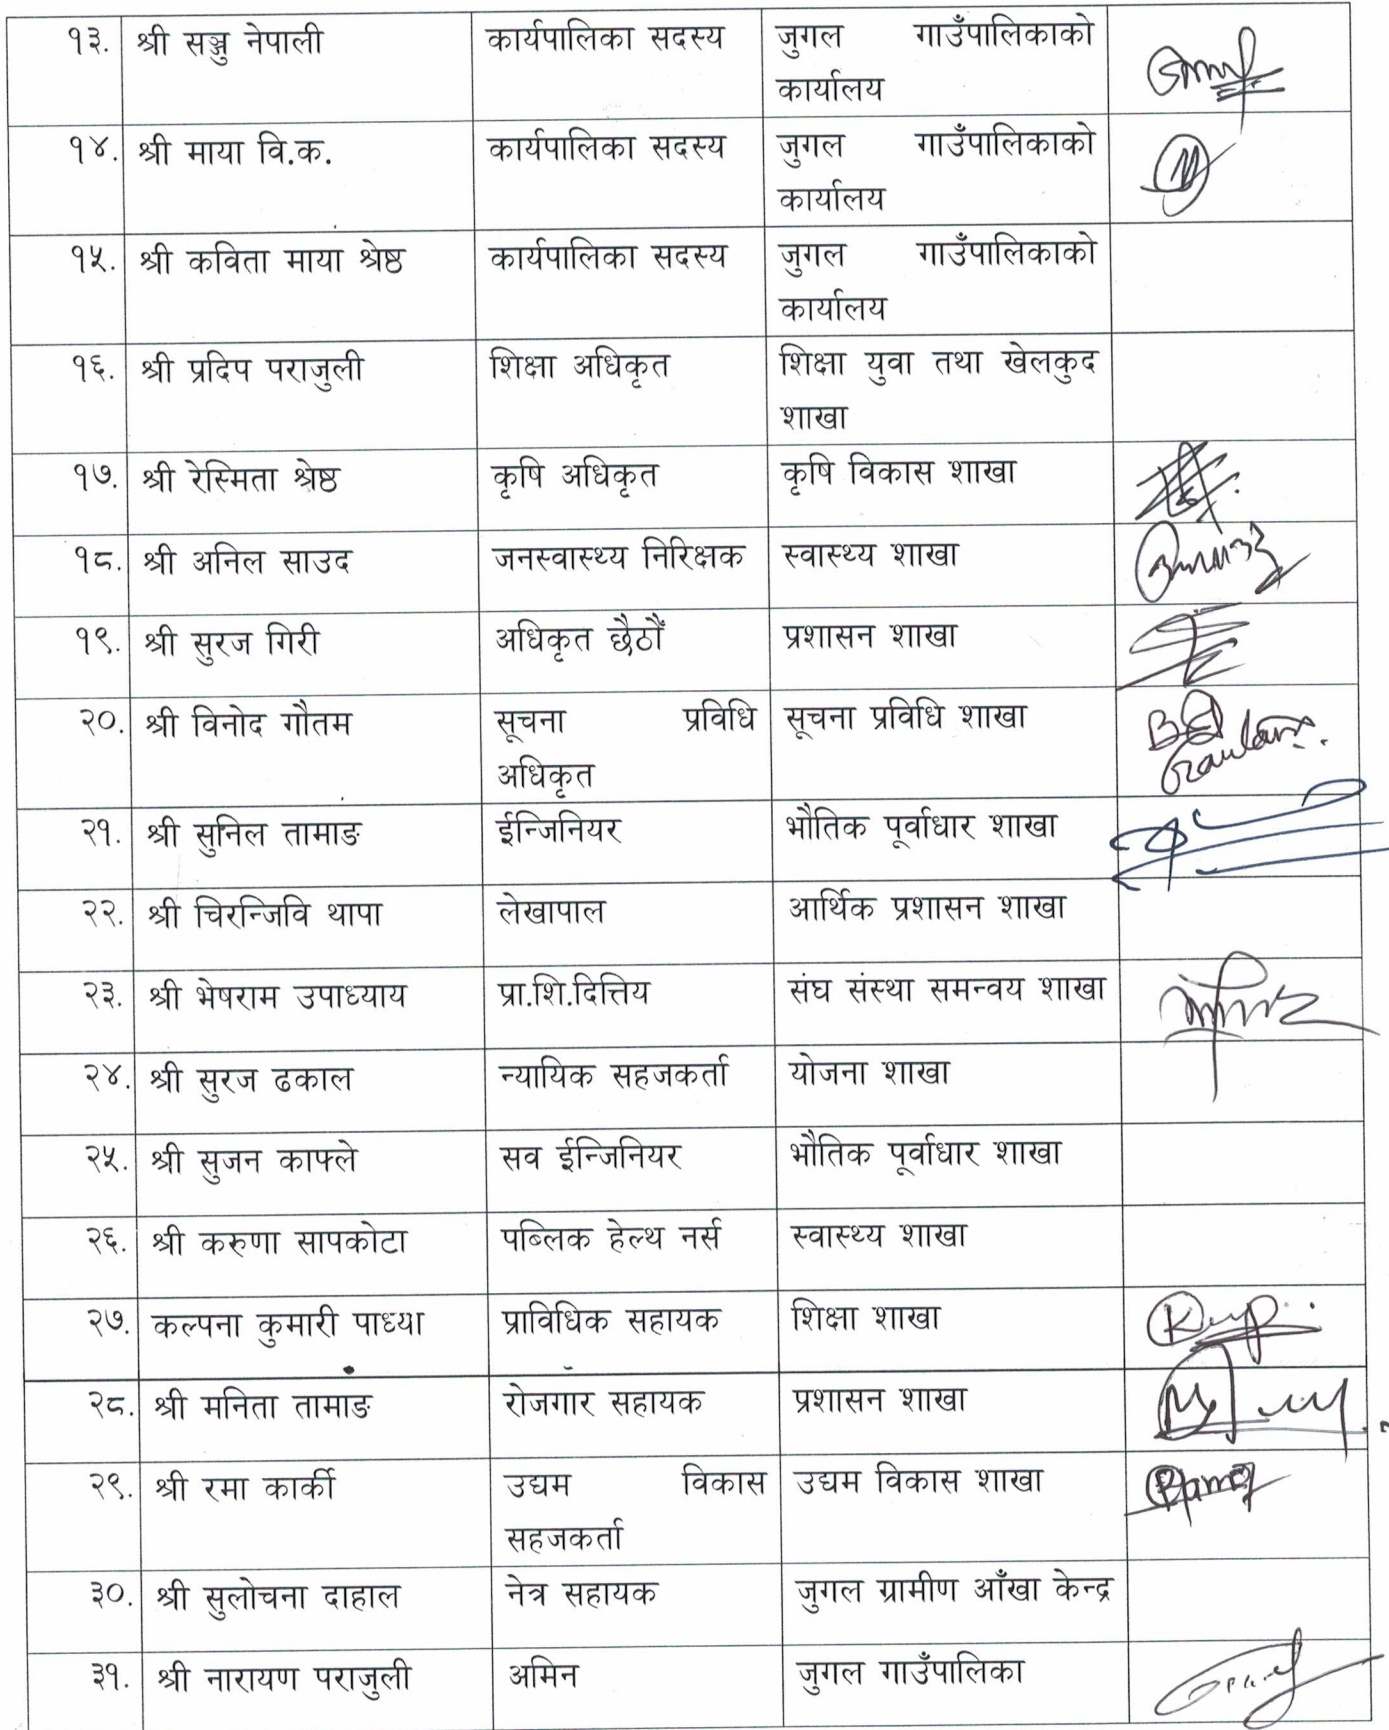 १३. श्री सञ्जु नेपाली कार्यपालिका सदस्य जुगल गाउँपालिकाको
कार्यालय
१४. श्री माया वि.क. कार्यपालिका सदस्य जुगल गाउँपालिकाको
कार्यालय
१५. श्री कविता माया श्रेष्ठ कार्यपालिका सदस्य जुगल गाउँपालिकाको
कार्यालय
१६. श्री प्रदिप पराजुली शिक्षा अधिकृत शिक्षा युवा तथा खेलकुद
शाखा
१७. श्री रेस्मिता श्रेष्ठ कृषि अधिकृत कृषि विकास शाखा
१८. श्री अनिल साउद जनस्वास्थ्य निरिक्षक स्वास्थ्य शाखा
१९. श्री सुरज गिरी अधिकृत छैठौँ प्रशासन शाखा
२०. श्री विनोद गौतम सूचना प्रविधि सूचना प्रविधि शाखा
अधिकृत
२१. श्री सुनिल तामाङ ईन्जिनियर भौतिक पूर्वाधार शाखा
२२. श्री चिरन्जिवि थापा लेखापाल आर्थिक प्रशासन शाखा
२३. श्री भेषराम उपाध्याय प्रा.शि.दित्तिय संघ संस्था समन्वय शाखा
२४. श्री सुरज ढकाल न्यायिक सहजकर्ता योजना शाखा
२५. श्री सुजन काफ्ले सव ईन्जिनियर भौतिक पूर्वाधार शाखा
२६. श्री करुणा सापकोटा पब्लिक हेल्थ नर्स स्वास्थ्य शाखा
२७. कल्पना कुमारी पाध्या प्राविधिक सहायक शिक्षा शाखा
२८. श्री मनिता तामाङ रोजगार सहायक प्रशासन शाखा
२९. श्री रमा कार्की उद्यम विकास उद्यम विकास शाखा
सहजकर्ता
३०. श्री सुलोचना दाहाल नेत्र सहायक जुगल ग्रामीण आँखा केन्द्र
३१. श्री नारायण पराजुली अमिन जुगल गाउँपालिका